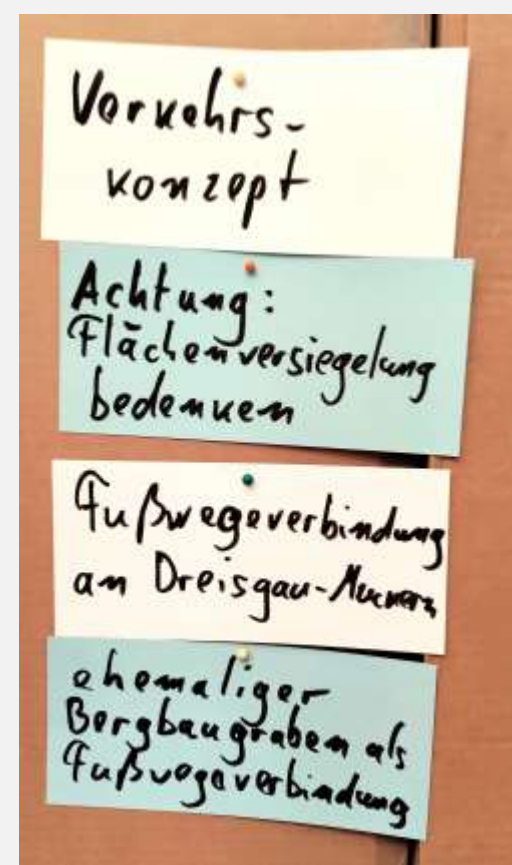 Verkehrs-
konzept
Achtung:
Flächenversiegelung
bedenken
Fußwegeverbindung
an Dreisgau-Muckern
ehemaliger
Bergbaugraben als
Fußwegeverbindung